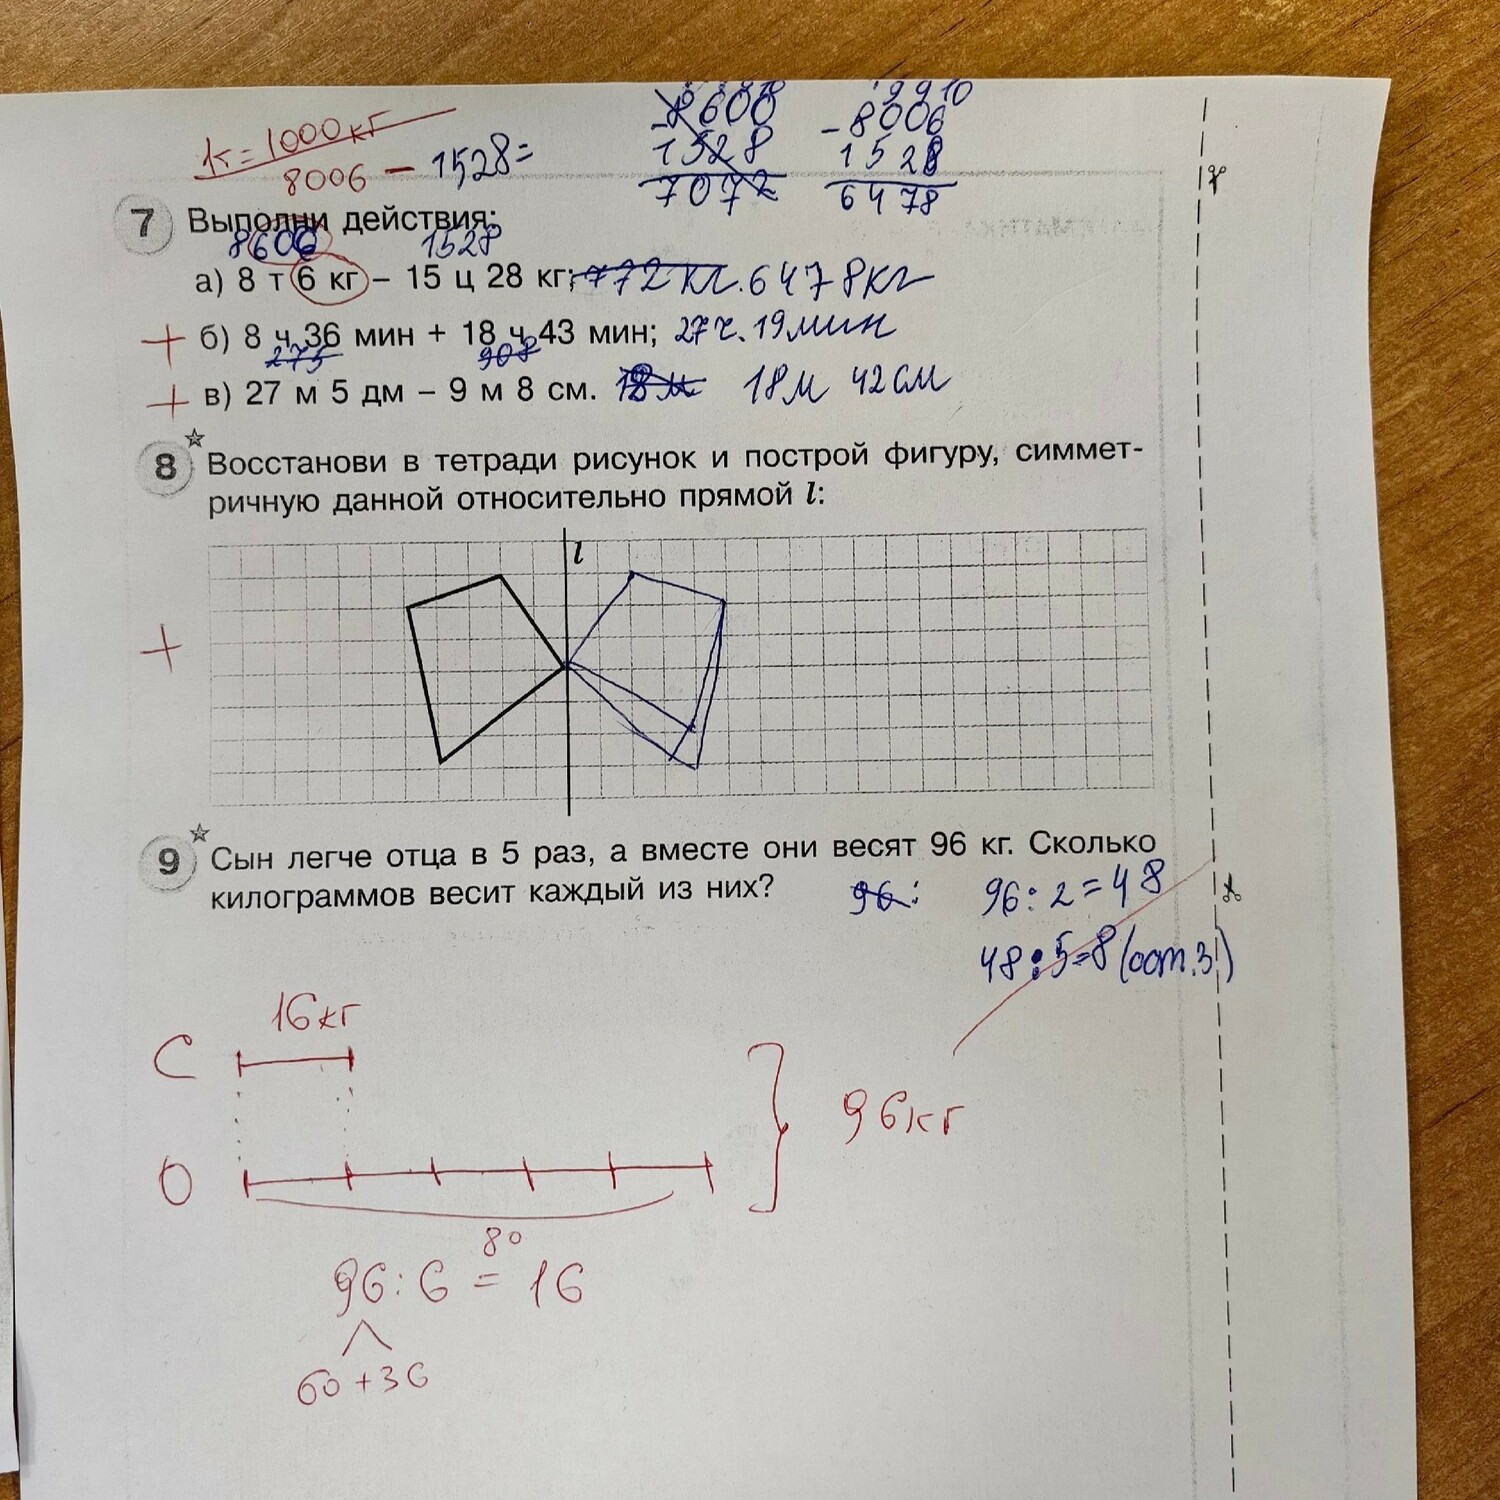 1т = 1000кг
8006 - 1528=
8600
- 1528
7072
9 9 10
- 8006
1528
6478
7 Выполни действия:
8606 1528
а) 8 т 6 кг – 15 ц 28 кг; 772 кг. 6478кг
+ б) 8 ч 36 мин + 18 ч 43 мин; 27ч. 19мин
275 908
+ в) 27 м 5 дм – 9 м 8 см. 18м 18м 42см
8 Восстанови в тетради рисунок и построй фигуру, симмет-
ричную данной относительно прямой l:
l
+
9 Сын легче отца в 5 раз, а вместе они весят 96 кг. Сколько
килограммов весит каждый из них? 96: 96:2=48
48:5=8(ост.3)
16кг
С
96кг
О
80
96:6 = 16
60+36